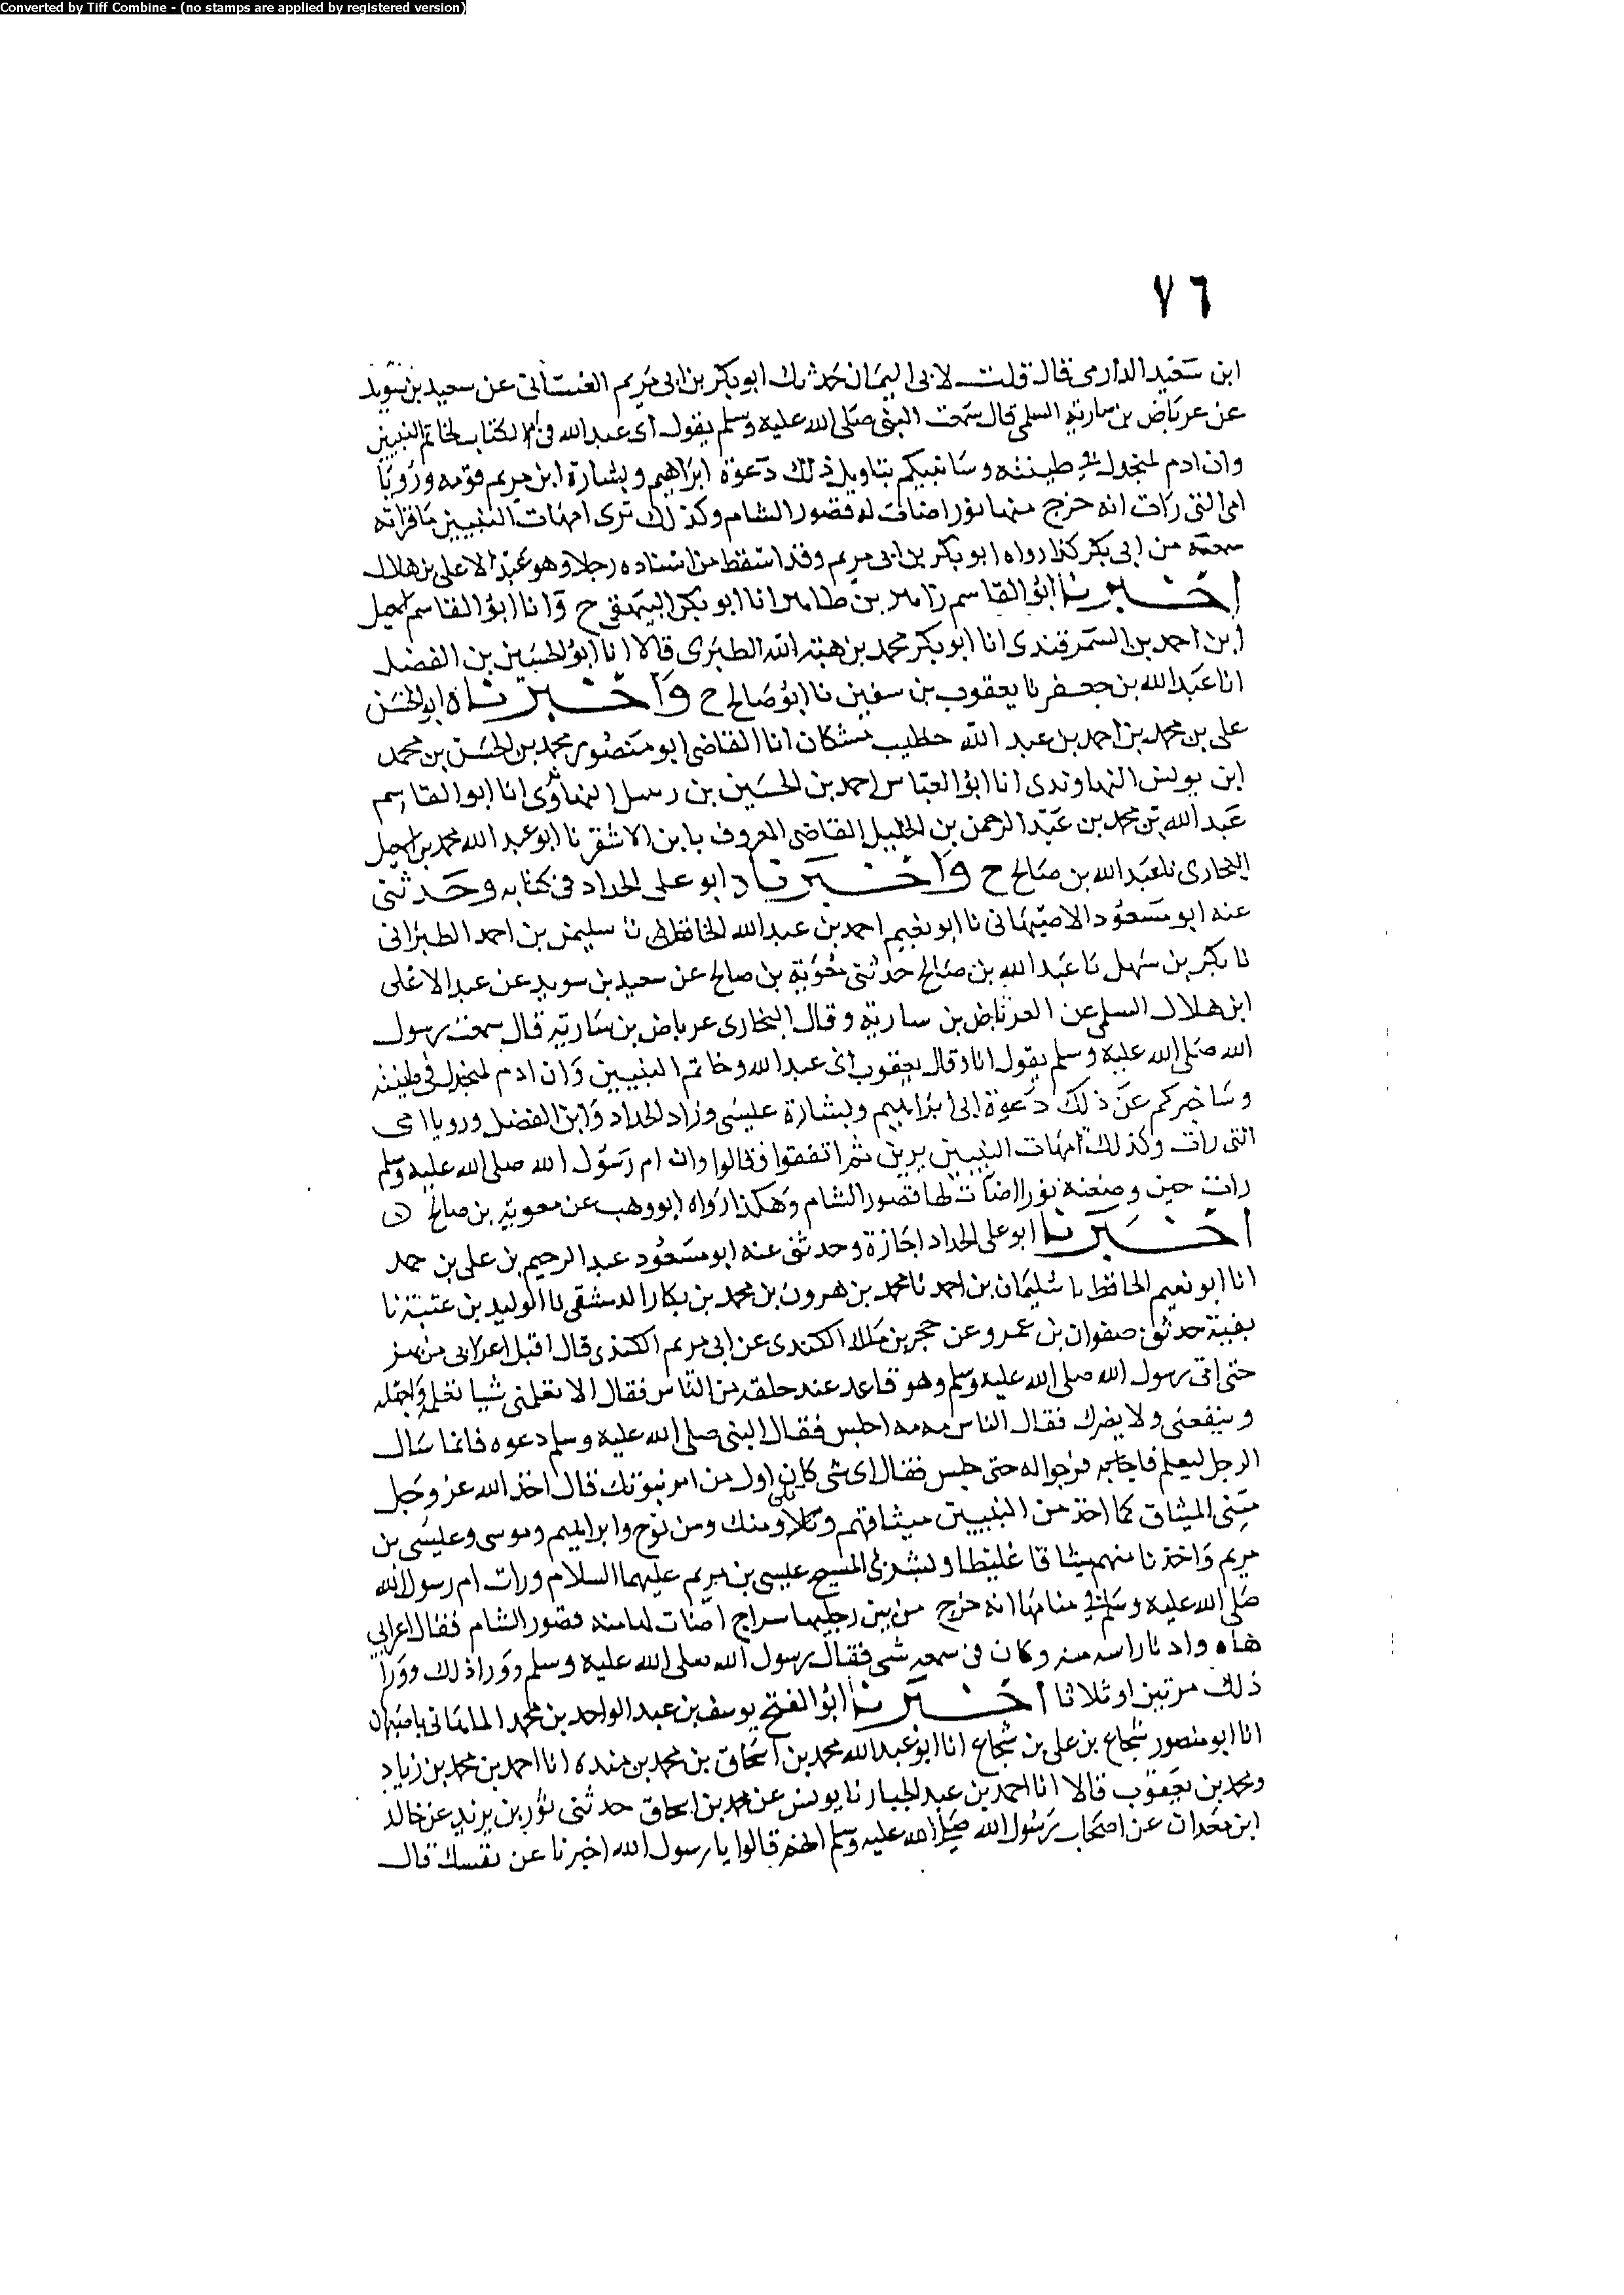 Converted by Tiff Combine - (no stamps are applied by registered version)
٧٦
ابن سعيد الدارمى قال قلت لابى اليمان حدثك ابو بكر بن ابى مريم الغسانى عن سعيد بن سويد
عن عرباض بن سارية السلمى قال سمعت النبى صلى الله عليه وسلم يقول انى عبد الله فى ام الكتاب لخاتم النبيين
وان ادم لمنجدل فى طينته وسانبيكم بتاويل ذلك دعوة ابراهيم وبشارة ابن مريم قومه ورويا
امى التى رات انه خرج منها نور اضات له قصور الشام وكذلك ترى امهات النبيين ما قراته
سمعته من ابى بكر كذا رواه ابو بكر بن ابى مريم وقد اسقط من اسناده رجلا وهو عبد الاعلى بن هلال
اخبرنا ابو القاسم زاهر بن طاهر انا ابو بكر البيهقى ح وانا ابو القاسم اسمعيل
ابن احمد بن السمرقندى انا ابو بكر محمد بن هبة الله الطبرى قالا انا ابو الحسين بن الفضل
انا عبد الله بن جعفر نا يعقوب بن سفين نا ابو صالح ح واخبرناه ابو الحسن
على بن محمد بن احمد بن عبد الله خطيب مشكان انا القاضى ابو منصور محمد بن الحسن بن محمد
ابن يونس النهاوندى انا ابو العباس احمد بن الحسين بن زنبيل النهاوندى انا ابو القاسم
عبد الله بن محمد بن عبد الرحمن بن الخليل القاضى المعروف بابن الاشقر نا ابو عبد الله محمد بن اسمعيل
البخارى نا عبد الله بن صالح ح واخبرنا ابو على الحداد فى كتابه وحدثنى
عنه ابو مسعود الاصبهانى نا ابو نعيم احمد بن عبد الله الحافظ نا سليمن بن احمد الطبرانى
نا بكر بن سهل نا عبد الله بن صالح حدثنى معوية بن صالح عن سعيد بن سويد عن عبد الاعلى
ابن هلال السلمى عن العرباض بن سارية وقال البخارى عرباض بن سارية قال سمعت رسول
الله صلى الله عليه وسلم يقول انا وقال يعقوب انى عبد الله وخاتم النبيين وان ادم لمنجدل فى طينته
وساخبركم عن ذلك دعوة ابى ابراهيم وبشارة عيسى وزاد الحداد وابن الفضل ورويا امى
التى رات وكذلك امهات النبيين يرين ثم اتفقوا فقالوا وان ام رسول الله صلى الله عليه وسلم
رات حين وضعته نورا اضات لها قصور الشام وهكذا رواه ابو وهب عن معوية بن صالح
اخبرنا ابو على الحداد اجازة وحدثنى عنه ابو مسعود عبد الرحيم بن على بن حمد
انا ابو نعيم الحافظ نا سليمان بن احمد نا محمد بن هرون بن محمد بن بكار الدمشقى نا الوليد بن عتبة نا
بقية حدثنى صفوان بن عمرو عن حجر بن مالك الكندى عن ابى مريم الكندى قال اقبل اعرابى من بهز
حتى اتى رسول الله صلى الله عليه وسلم وهو قاعد عند حلقة من الناس فقال الا تعلمنى شيا تعلمه واجهله
وينفعنى ولا يضرك فقال الناس مه مه اجلس فقال النبى صلى الله عليه وسلم دعوه فانما سال
الرجل ليعلم فافرجوا له حتى جلس فقال اى شى كان اول من امر نبوتك قال اخذ الله عز وجل
منى الميثاق كما اخذ من النبيين ميثاقهم وتلا ومنك ومن نوح وابراهيم وموسى وعيسى بن
مريم واخذنا منهم ميثاقا غليظا وبشر بى المسيح عيسى بن مريم عليهما السلام ورات ام رسول الله
صلى الله عليه وسلم فى منامها انه خرج من بين رجليها سراج اضات لها منه قصور الشام فقال اعرابى
هاه وادنا راسه منه وكان فى سمعه شى فقال رسول الله صلى الله عليه وسلم وورا ذلك وورا
ذلك مرتين او ثلاثا اخبرنا ابو الفتح يوسف بن عبد الواحد بن محمد الماهانى باصبهان
انا ابو منصور شجاع بن على بن شجاع انا ابو عبد الله محمد بن اسحاق بن محمد بن منده انا احمد بن محمد بن زياد
ومحمد بن يعقوب قالا انا احمد بن عبد الجبار نا يونس عن محمد بن اسحاق حدثنى ثور بن يزيد عن خالد
ابن معدان عن اصحاب رسول الله صلى الله عليه وسلم انهم قالوا يا رسول الله اخبرنا عن نفسك قال